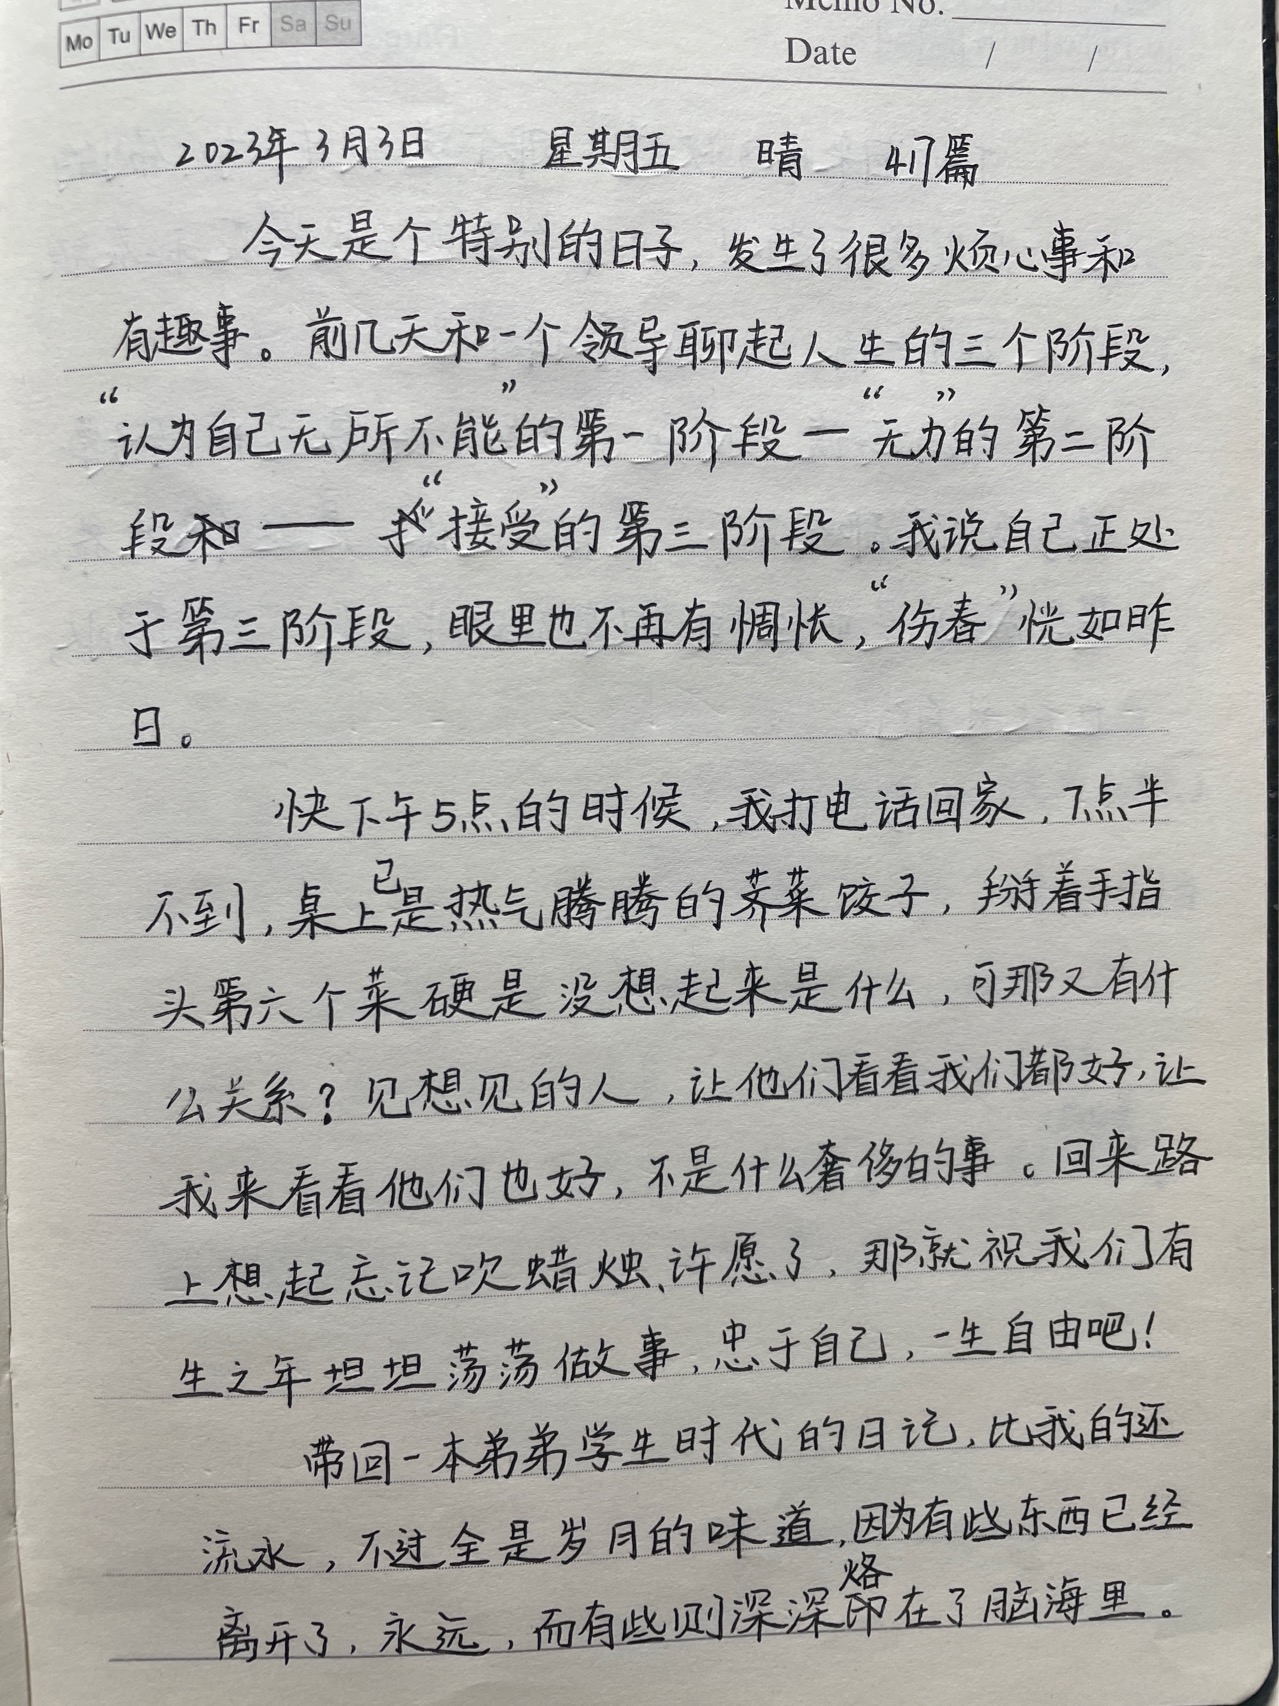 Mo Tu We Th Fr Sa Su
Memo No.
Date / /
2023年3月3日 星期五 晴 417篇
今天是个特别的日子,发生了很多烦心事和
有趣事。前几天和一个领导聊起人生的三个阶段,
“认为自己无所不能”的第一阶段—“无力”的第二阶
段——“接受”的第三阶段。我说自己正处
于第三阶段,眼里也不再有惆怅,“伤春”恍如昨
日。
快下午5点的时候,我打电话回家,7点半
不到,桌上已是热气腾腾的荠菜饺子,掰着手指
头第六个菜硬是没想起来是什么,可那又有什
么关系?见想见的人,让他们看看我们都好,让
我来看看他们也好,不是什么奢侈的事。回来路
上想起忘记吹蜡烛、许愿了,那就祝我们有
生之年坦坦荡荡做事,忠于自己,一生自由吧!
带回一本弟弟学生时代的日记,比我的还
流水,不过全是岁月的味道,因为有些东西已经
离开了,永远,而有些则深深烙印在了脑海里。